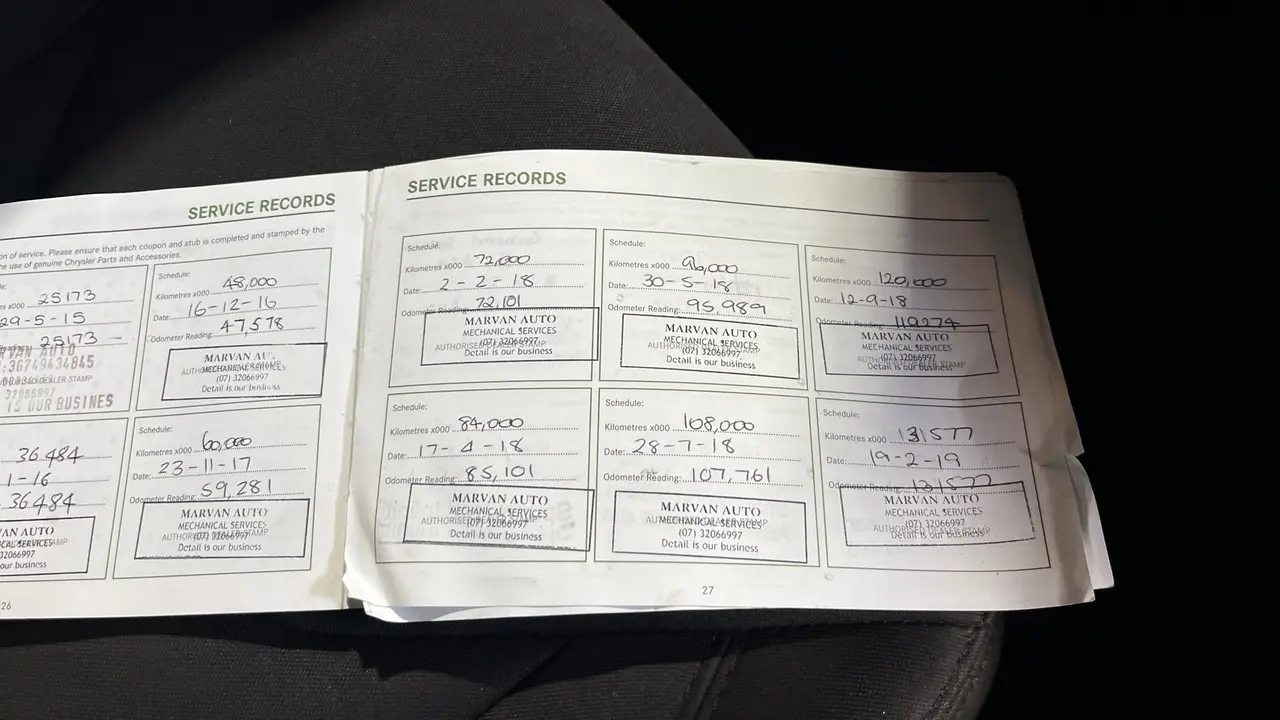 SERVICE RECORDS
on of service. Please ensure that each coupon and stub is completed and stamped by the
he use of genuine Chrysler Parts and Accessories.
es x000 25173
29-5-15
25173
:36749434845
DEALER STAMP
32066997
IS OUR BUSINES
Schedule:
Kilometres x000 48,000
Date: 16-12-16
Odometer Reading: 47578
MARVAN AU
AUTHORISED DEALER STAMP
MECHANICAL SERVICES
(07) 32066997
Detail is our business
36484
1-16
36484
AN AUTO
CAL SERVICES
32066997
our business
Schedule:
Kilometres x000 60,000
Date: 23-11-17
Odometer Reading: 59,281
MARVAN AUTO
MECHANICAL SERVICES
AUTHORISED DEALER STAMP
(07) 32066997
Detail is our business
26
SERVICE RECORDS
Schedule:
Kilometres x000 72,000
Date: 2-2-18
Odometer Reading: 72,101
MARVAN AUTO
MECHANICAL SERVICES
(07) 32066997
AUTHORISED DEALER STAMP
Detail is our business
Schedule:
Kilometres x000 96,000
Date: 30-5-18
Odometer Reading: 95,989
MARVAN AUTO
MECHANICAL SERVICES
AUTHORISED DEALER STAMP
(07) 32066997
Detail is our business
Kilometres x000 120,000
Date: 12-9-18
Odometer Reading: 119274
MARVAN AUTO
MECHANICAL SERVICES
(07) 32066997
AUTHORISED DEALER STAMP
Detail is our business
Schedule:
Kilometres x000 84,000
Date: 17-4-18
Odometer Reading: 85,101
MARVAN AUTO
MECHANICAL SERVICES
AUTHORISED DEALER STAMP
(07) 32066997
Detail is our business
Schedule:
Kilometres x000 108,000
Date: 28-7-18
Odometer Reading: 107,761
MARVAN AUTO
MECHANICAL SERVICES
AUTHORISED DEALER STAMP
(07) 32066997
Detail is our business
Schedule:
Kilometres x000 131577
Date: 19-2-19
Odometer Reading: 131577
MARVAN AUTO
MECHANICAL SERVICES
(07) 32066997
AUTHORISED DEALER STAMP
Detail is our business
27